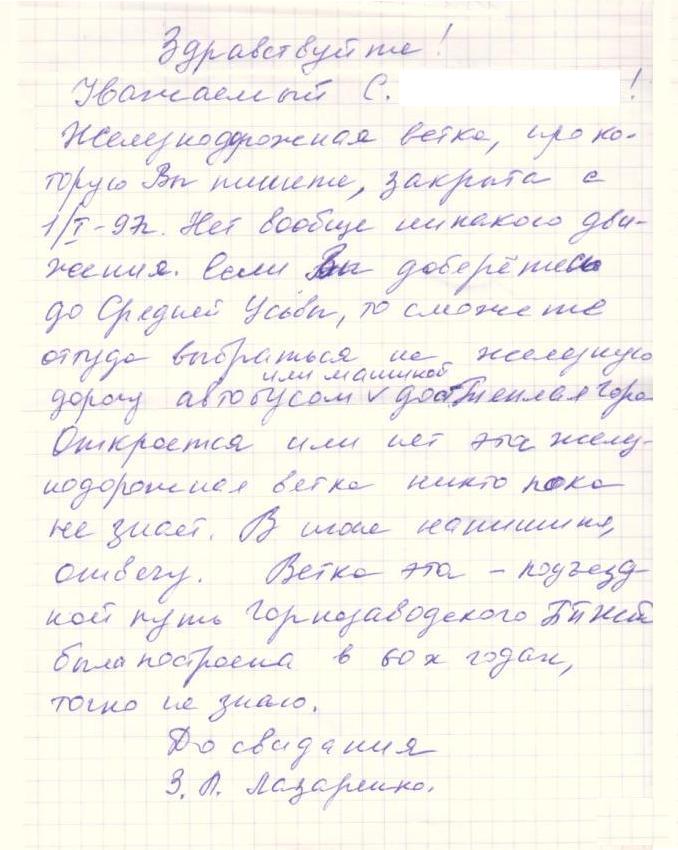 Здравствуйте!
Уважаемый С. !
Железнодорожная ветка, про ко-
торую Вы пишете, закрыта с
1/I-97г. Нет вообще никакого дви-
жения. Если Вы доберётесь
до Средней Усьвы, то сможете
оттуда выбраться на железную
или машиной
дорогу автобусом до ст Теплая Гора
Откроется или нет эта желез-
нодорожная ветка никто пока
не знает. В мае напишите,
отвечу. Ветка эта – подъезд
ной путь Горнозаводского ППЖТ
была построена в 60х годах,
точно не знаю.
До свидания
З. П. Лазаренко.